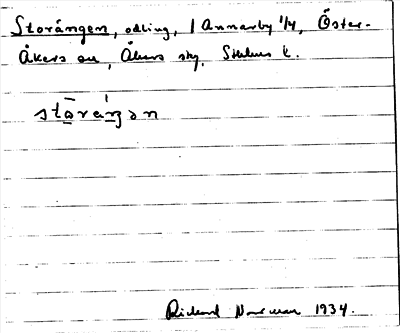 Storängen, odling, 1 Annarby 1/4, Öster-
Åkers sn, Åkers skg. Sthlms l.
störäŋən
Rickard 1934.